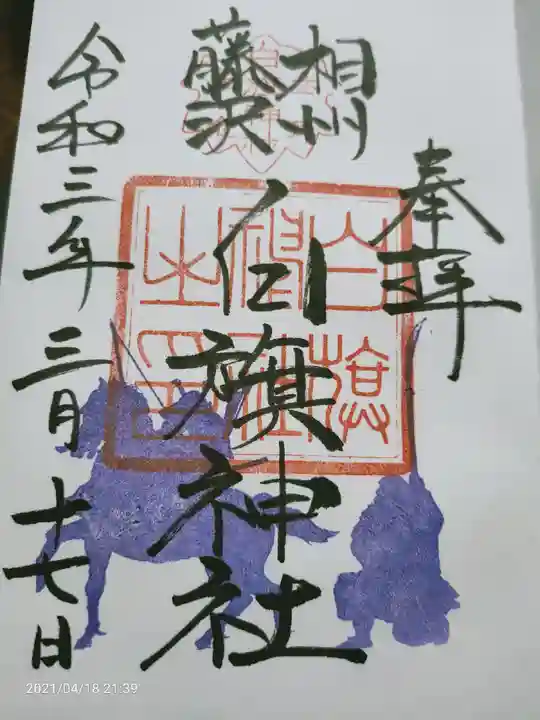 奉拝
相州
藤沢
白旗神社
白旗
神社
之印
令和三年三月十七日
2021/04/18 21:39